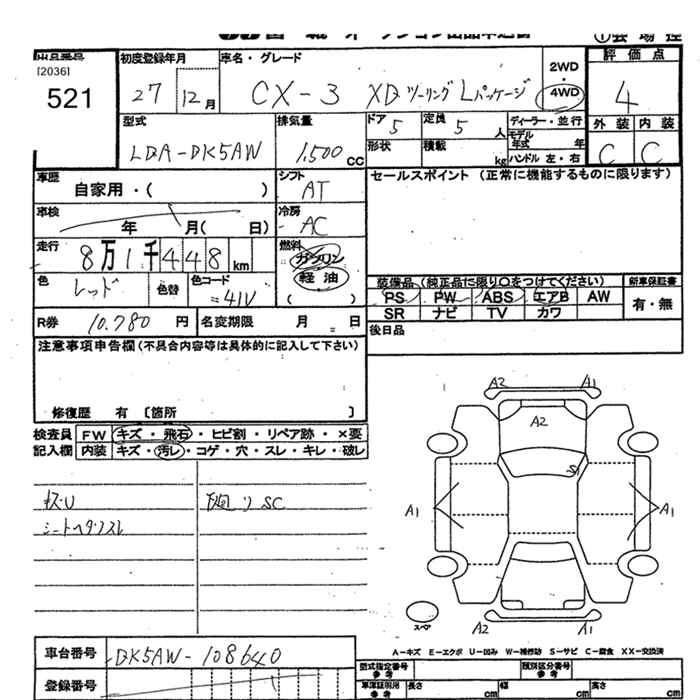 出品番号 [2036] 521
初度登録年月 27 12月
車名・グレード CX-3 XDツーリングLパッケージ
2WD・4WD
評価点 4
型式 LDA-DK5AW
排気量 1,500cc
ドア 5
定員 5人
形状
積載 kg
ディーラー・並行
モデル年式 年
ハンドル 左・右
外装 C
内装 C
車歴 自家用・( )
シフト AT
セールスポイント (正常に機能するものに限ります)
車検 年 月( 日)
冷房 AC
走行 8万1千448km
燃料 ガソリン 軽油 ( )
色 レッド
色替
色コード 41V
装備品 (純正品に限り○をつけてください)
新車保証書 有・無
PS PW ABS エアB AW
SR ナビ TV カワ
R券 10.780円
名変期限 月 日
後日品
注意事項申告欄(不具合内容等は具体的に記入して下さい)
修復歴 有 〔箇所 〕
検査員記入欄
FW キズ・飛石・ヒビ割・リペア跡・×要
内装 キズ・汚レ・コゲ・穴・スレ・キレ・破レ
キズU
下廻リSC
A2 A1
A2
A1 A1
スペア
A2 A1
A-キズ E-エクボ U-凹み W-補修跡 S-サビ C-腐食 XX-交換済
車台番号 DK5AW-108640
登録番号
型式指定番号 参考
類別区分番号 参考
車庫証明用 参考
長さ cm
幅 cm
高さ cm